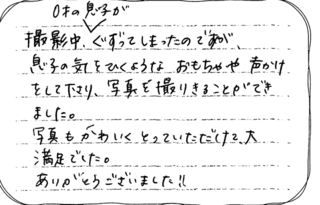 0才の息子が
撮影中、ぐずってしまったのですが、
息子の気をひくような おもちゃや 声かけ
をして下さり、写真を撮りきることができ
ました。
写真も かわいく とっていただけて、大
満足でした。
ありがとうございました!!